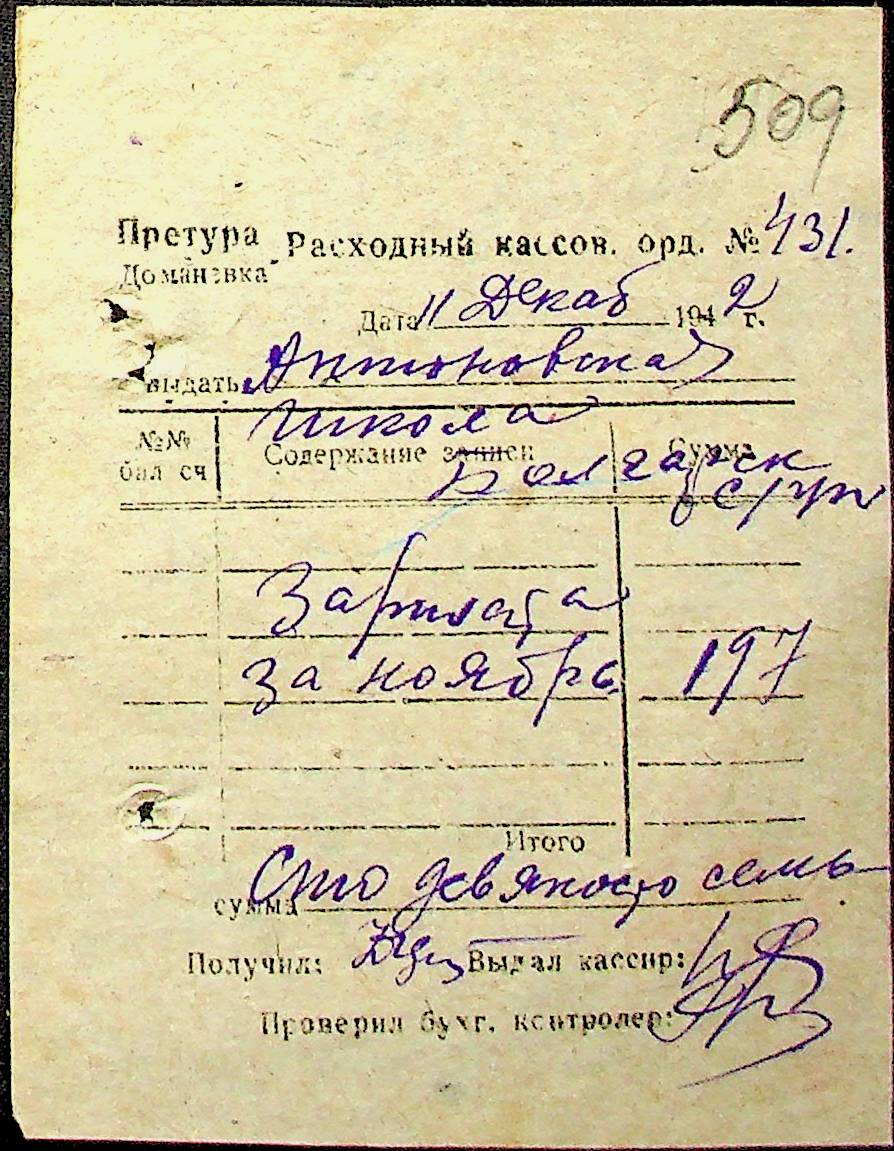 509
Претура Расходный кассов. орд. № 431.
Домановка
Дата 11 Декаб 1942 г.
выдать Антоновская
школа
№№ бал сч Содержание записи Сумма
Болгарск
Зарплата
за ноябрь 197
Итого
сумма Сто девяносто семь
Получил: Выдал кассир:
Проверил бухг. контролер: